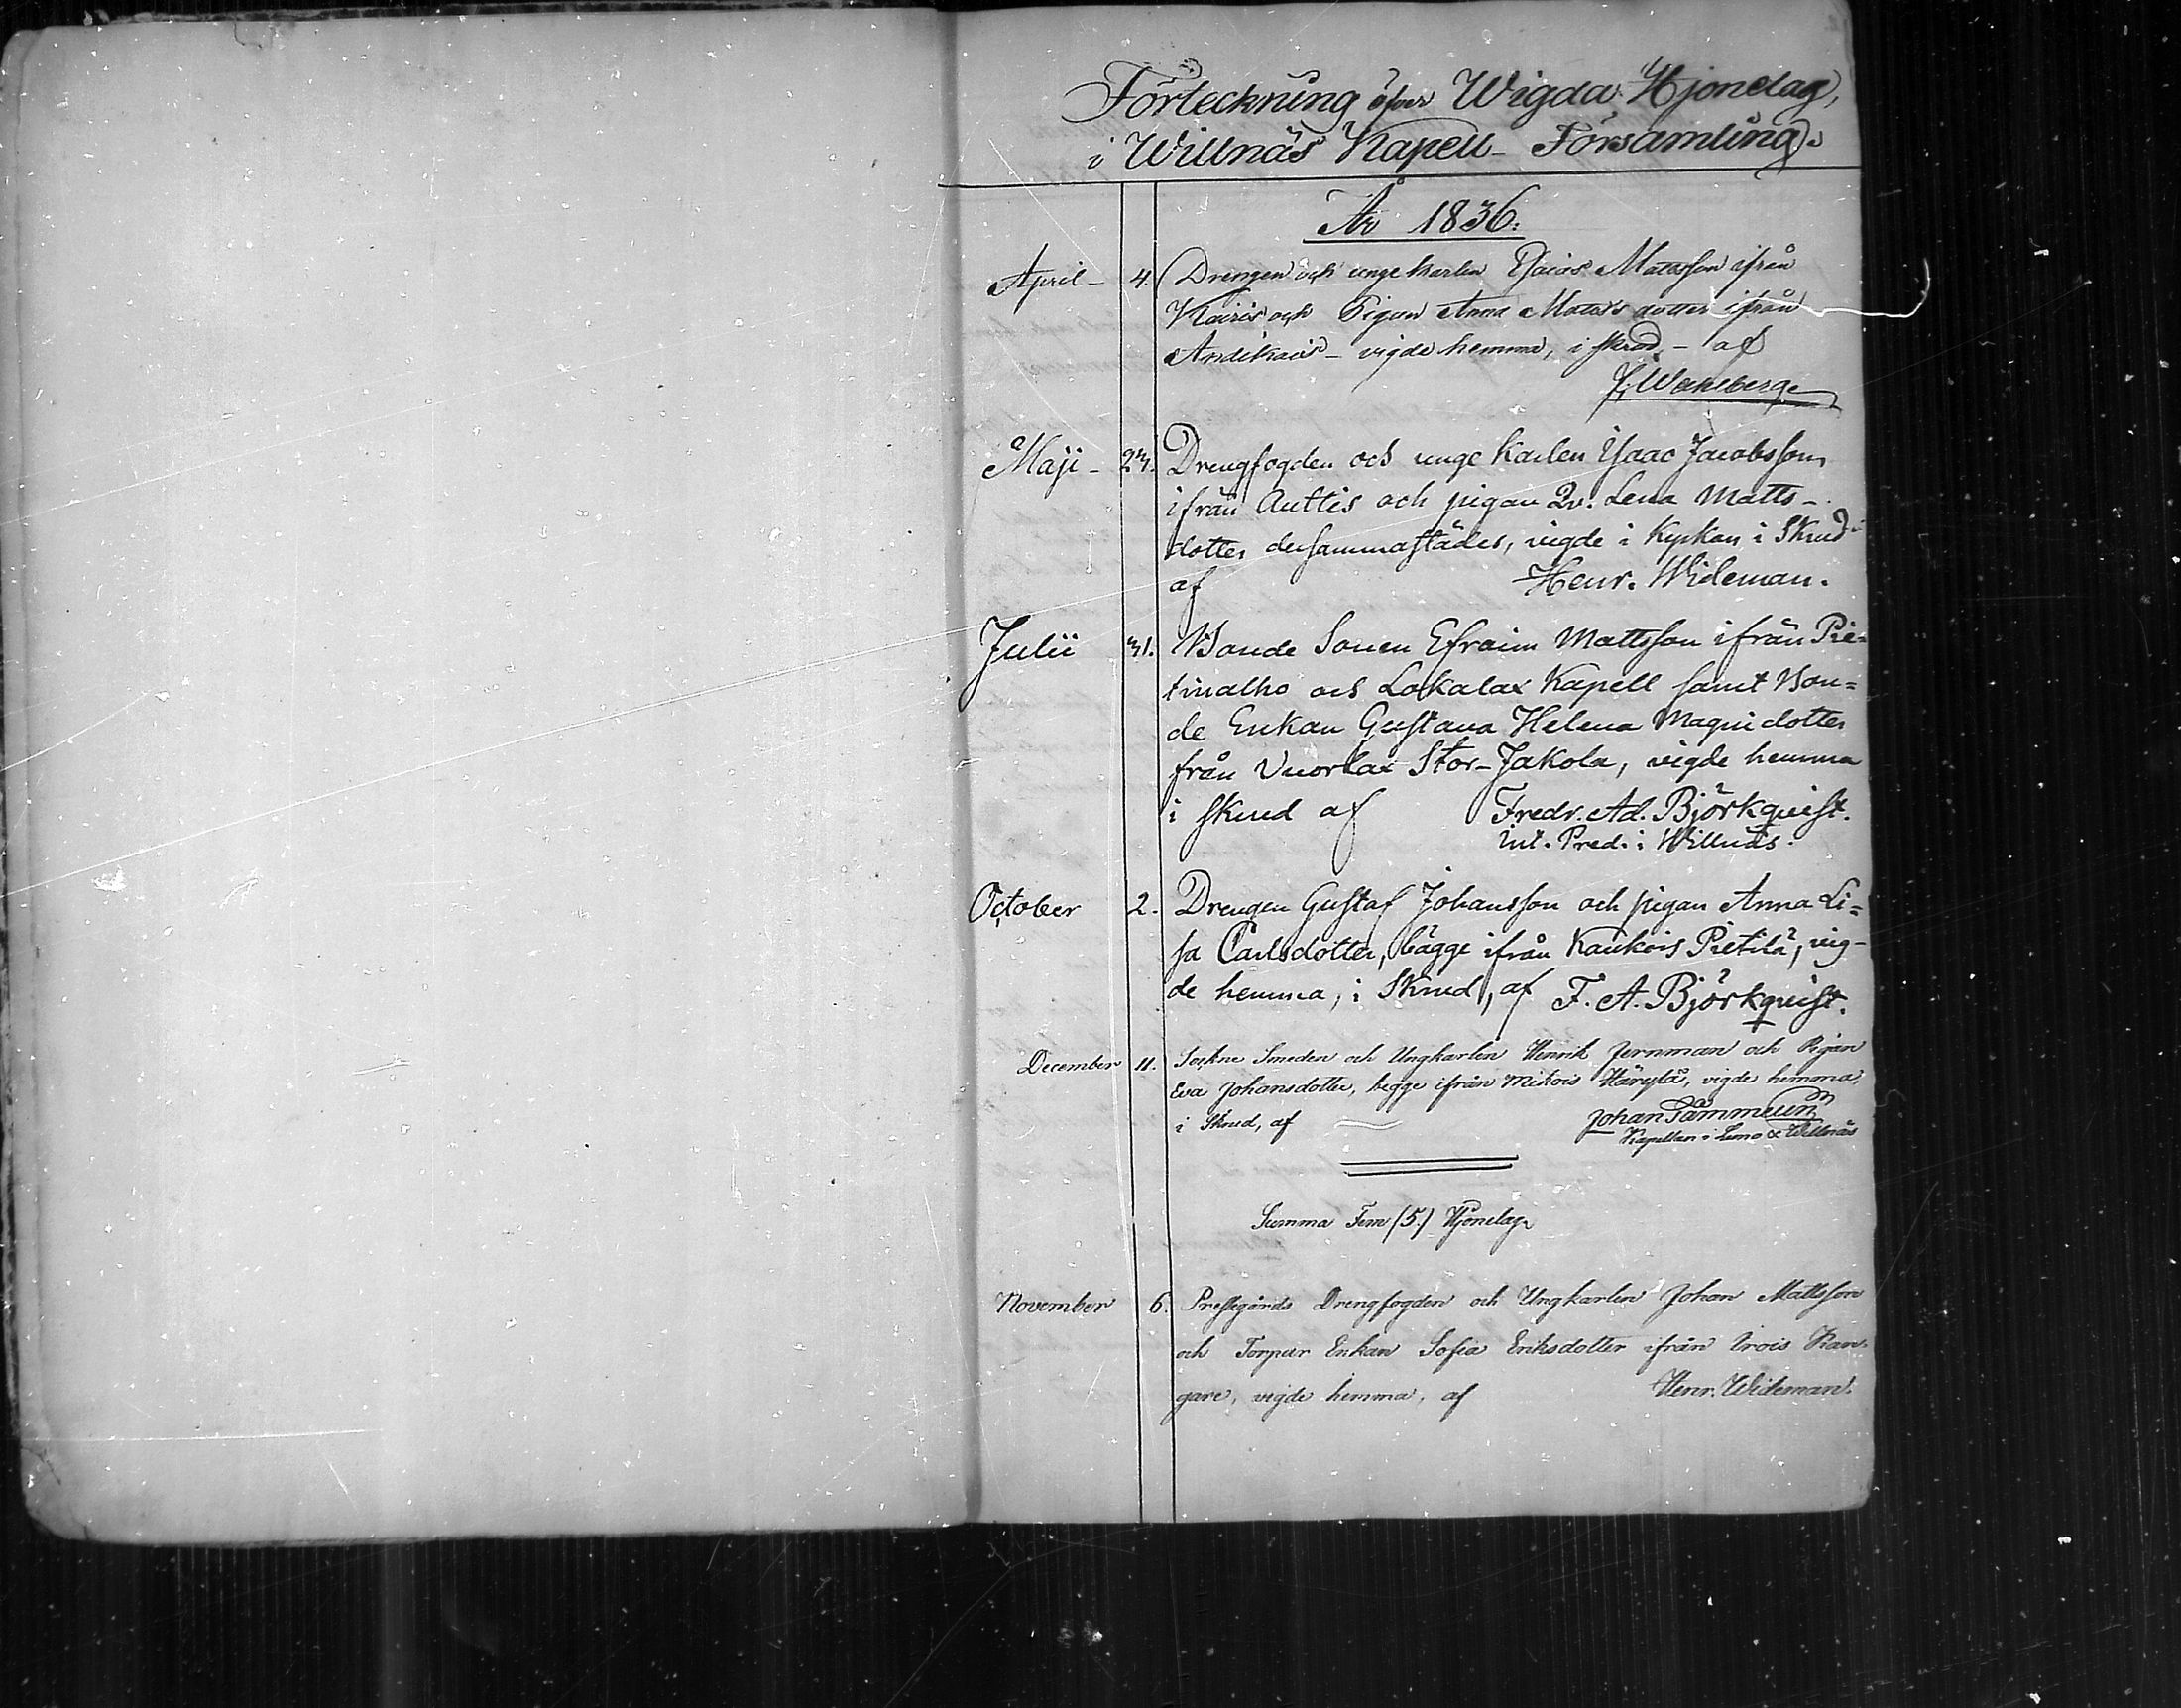 Förteckning öfver Wigda Hjonelag,
i Willnäs Kapell-Församling.
År 1836.
April - 4. Drengen och unge karlen Esaias Matsson ifrån
Kairis och Pigan Anna Matts dotter ifrån
Andikais - vigde hemma, i skrud, - af
Maji - 23. Drengfogden och unge Karlen Isaac Jacobsson
ifrån Auttis och pigan Lena Matts-
dotter dersammastädes, vigde i Kyrkan i Skrud
af Henr. Wideman.
Julii 31. Bonde Sonen Efraim Mattsson ifrån Pie=
tinalho och Lokalax Kapell samt Bon=
de Enkan Gustava Helena Maqui dotter
från Vuorlax Stor-Jakola, vigde hemma
i skrud af Fredr. Ad. Björkquist.
int. Pred. i Willnäs.
October 2. Drengen Gustaf Johansson och pigan Anna Li=
sa Carlsdotter, bägge ifrån Kaukois Pietilä, vig-
de hemma, i Skrud, af F. A. Björkquist.
December 11. Sockne Smeden och Ungkarlen Henrik Jernman och Pigan
Eva Johansdotter, begge ifrån Mikois Häryla, vigde hemma,
i Skrud, af Johan Tammelin
Kapellan i Lemo & Willnäs
Summa Fem (5.) Hjonelag
November 6. Prestgårds Drengfogden och Ungkarlen Johan Mattsson
och Torpar Enkan Sofia Eriksdotter ifrån Irois Kan-
gare, vigde hemma, af Henr. Wideman.